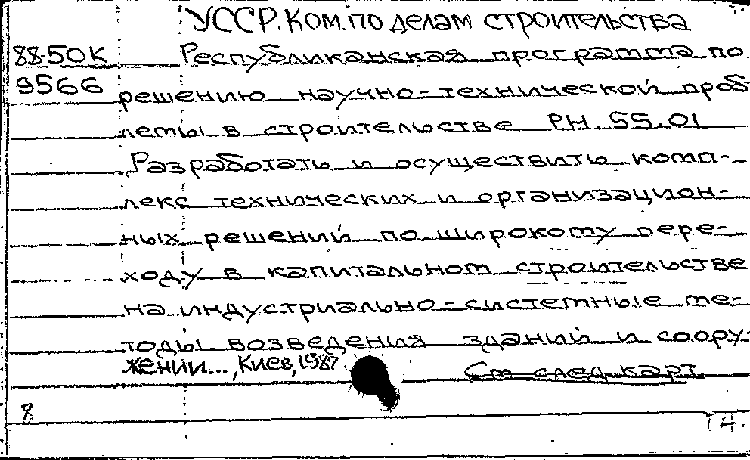 УССР. Ком. по делам строительства
88-50К Республиканская программа по
9566 решению научно-технической проб-
лемы в строительстве РН.55.01
"Разработать и осуществить комп-
лекс технических и организацион-
ных решений по широкому пере-
ходу в капитальном строительстве
на индустриально-системные ме-
тоды возведения зданий и соору-
жений"..., Киев, 1987
См след. карт.
8
14.